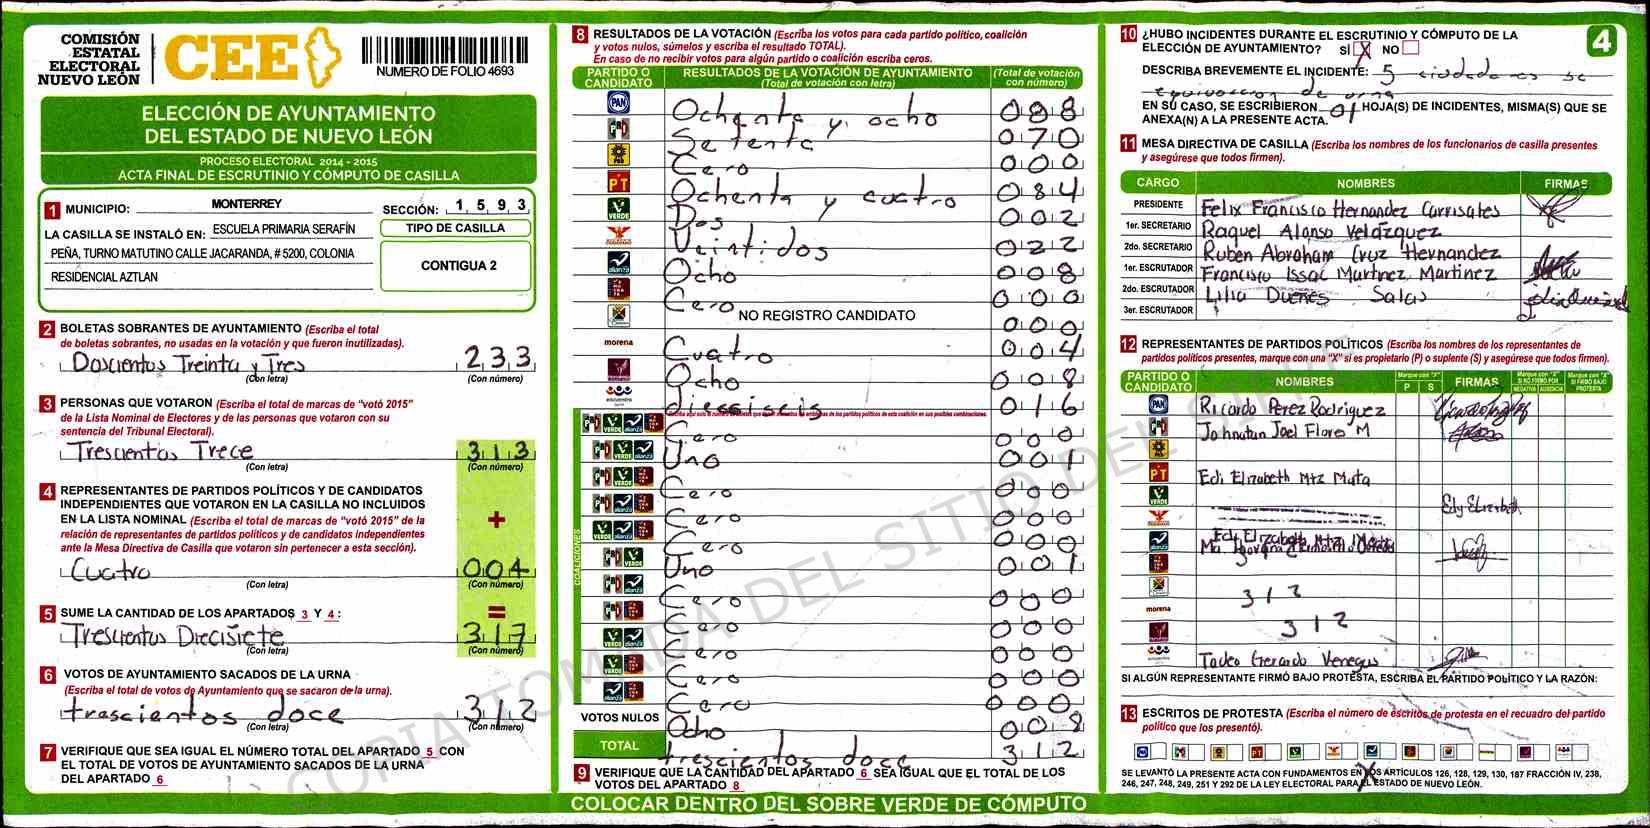 COMISIÓN
ESTATAL
ELECTORAL
NUEVO LEÓN
CEE
NUMERO DE FOLIO 4693
ELECCIÓN DE AYUNTAMIENTO
DEL ESTADO DE NUEVO LEÓN
PROCESO ELECTORAL 2014 - 2015
ACTA FINAL DE ESCRUTINIO Y CÓMPUTO DE CASILLA
1 MUNICIPIO: MONTERREY SECCIÓN: 1 5 9 3
LA CASILLA SE INSTALÓ EN: ESCUELA PRIMARIA SERAFÍN
PEÑA, TURNO MATUTINO CALLE JACARANDA, # 5200, COLONIA
RESIDENCIAL AZTLAN
TIPO DE CASILLA
CONTIGUA 2
2 BOLETAS SOBRANTES DE AYUNTAMIENTO (Escriba el total
de boletas sobrantes, no usadas en la votación y que fueron inutilizadas).
Doscientos Treinta y Tres 233
(Con letra) (Con número)
3 PERSONAS QUE VOTARON (Escriba el total de marcas de "votó 2015"
de la Lista Nominal de Electores y de las personas que votaron con su
sentencia del Tribunal Electoral).
Trescientos Trece 313
(Con letra) (Con número)
4 REPRESENTANTES DE PARTIDOS POLÍTICOS Y DE CANDIDATOS
INDEPENDIENTES QUE VOTARON EN LA CASILLA NO INCLUIDOS
EN LA LISTA NOMINAL (Escriba el total de marcas de "votó 2015" de la
relación de representantes de partidos políticos y de candidatos independientes
ante la Mesa Directiva de Casilla que votaron sin pertenecer a esta sección).
+
Cuatro 004
(Con letra) (Con número)
5 SUME LA CANTIDAD DE LOS APARTADOS 3 Y 4 : =
Trescientos Diecisiete 317
(Con letra) (Con número)
6 VOTOS DE AYUNTAMIENTO SACADOS DE LA URNA
(Escriba el total de votos de Ayuntamiento que se sacaron de la urna).
trascientos doce 312
(Con letra) (Con número)
7 VERIFIQUE QUE SEA IGUAL EL NÚMERO TOTAL DEL APARTADO 5 CON
EL TOTAL DE VOTOS DE AYUNTAMIENTO SACADOS DE LA URNA
DEL APARTADO 6
8 RESULTADOS DE LA VOTACIÓN (Escriba los votos para cada partido político, coalición
y votos nulos, súmelos y escriba el resultado TOTAL).
En caso de no recibir votos para algún partido o coalición escriba ceros.
PARTIDO O CANDIDATO RESULTADOS DE LA VOTACIÓN DE AYUNTAMIENTO (Total de votación con letra) (Total de votación con número)
PAN Ochenta y ocho 088
PRI Setenta 070
PRD Cero 000
PT Ochenta y cuatro 084
VERDE Dos 002
Veintidos 022
alianza Ocho 008
Cero 000
NO REGISTRO CANDIDATO 000
morena Cuatro 004
Ocho 008
encuentro dieciseis 016
COALICIONES
VERDE alianza Cero 000
VERDE alianza Uno 001
VERDE Cero 000
alianza Cero 000
VERDE alianza Cero 000
VERDE Uno 001
alianza Cero 000
Cero 000
VERDE alianza Cero 000
VERDE Cero 000
alianza Cero 000
VOTOS NULOS Ocho 008
TOTAL trescientos doce 312
9 VERIFIQUE QUE LA CANTIDAD DEL APARTADO 6 SEA IGUAL QUE EL TOTAL DE LOS
VOTOS DEL APARTADO 8
COLOCAR DENTRO DEL SOBRE VERDE DE CÓMPUTO
10 ¿HUBO INCIDENTES DURANTE EL ESCRUTINIO Y CÓMPUTO DE LA
ELECCIÓN DE AYUNTAMIENTO? SÍ X NO
4
DESCRIBA BREVEMENTE EL INCIDENTE: 5 ciudadanos se
equivocaron de urna
EN SU CASO, SE ESCRIBIERON 01 HOJA(S) DE INCIDENTES, MISMA(S) QUE SE
ANEXA(N) A LA PRESENTE ACTA.
11 MESA DIRECTIVA DE CASILLA (Escriba los nombres de los funcionarios de casilla presentes
y asegúrese que todos firmen).
CARGO NOMBRES FIRMAS
PRESIDENTE Felix Francisco Hernandez Carrisales
1er. SECRETARIO Raquel Alonso Velázquez
2do. SECRETARIO Ruben Abraham Cruz Hernandez
1er. ESCRUTADOR Francisco Issac Martinez Martinez
2do. ESCRUTADOR Lilia Dueñes Salas
3er. ESCRUTADOR
12 REPRESENTANTES DE PARTIDOS POLÍTICOS (Escriba los nombres de los representantes de
partidos políticos presentes, marque con una "X" si es propietario (P) o suplente (S) y asegúrese que todos firmen).
PARTIDO O CANDIDATO NOMBRES P S FIRMAS
PAN Ricardo Perez Rodriguez
Johnatan Joel Flores M
PT Edi Elizabeth Mtz Mata
VERDE Edy Elizabeth
Edi Elizabeth Mtz Mata
312
morena
312
Tadeo Gerardo Venegas
SI ALGÚN REPRESENTANTE FIRMÓ BAJO PROTESTA, ESCRIBA EL PARTIDO POLÍTICO Y LA RAZÓN:
13 ESCRITOS DE PROTESTA (Escriba el número de escritos de protesta en el recuadro del partido
político que los presentó).
SE LEVANTÓ LA PRESENTE ACTA CON FUNDAMENTOS EN LOS ARTÍCULOS 126, 128, 129, 130, 187 FRACCIÓN IV, 238,
246, 247, 248, 249, 251 Y 292 DE LA LEY ELECTORAL PARA EL ESTADO DE NUEVO LEÓN.
COPIA TOMADA DEL SITIO DEL SIPRE